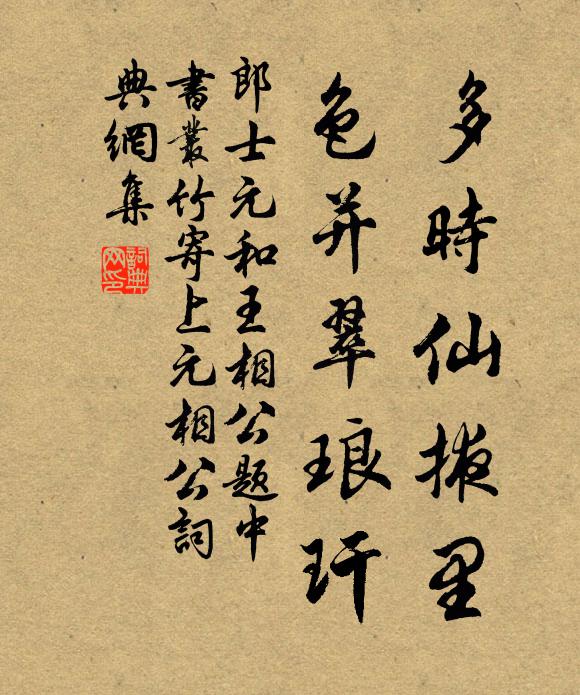 多時仙掖里
色并翠琅玕
郎士元和王相公題中
書叢竹寄上元相公詞
典網集
詞典網印